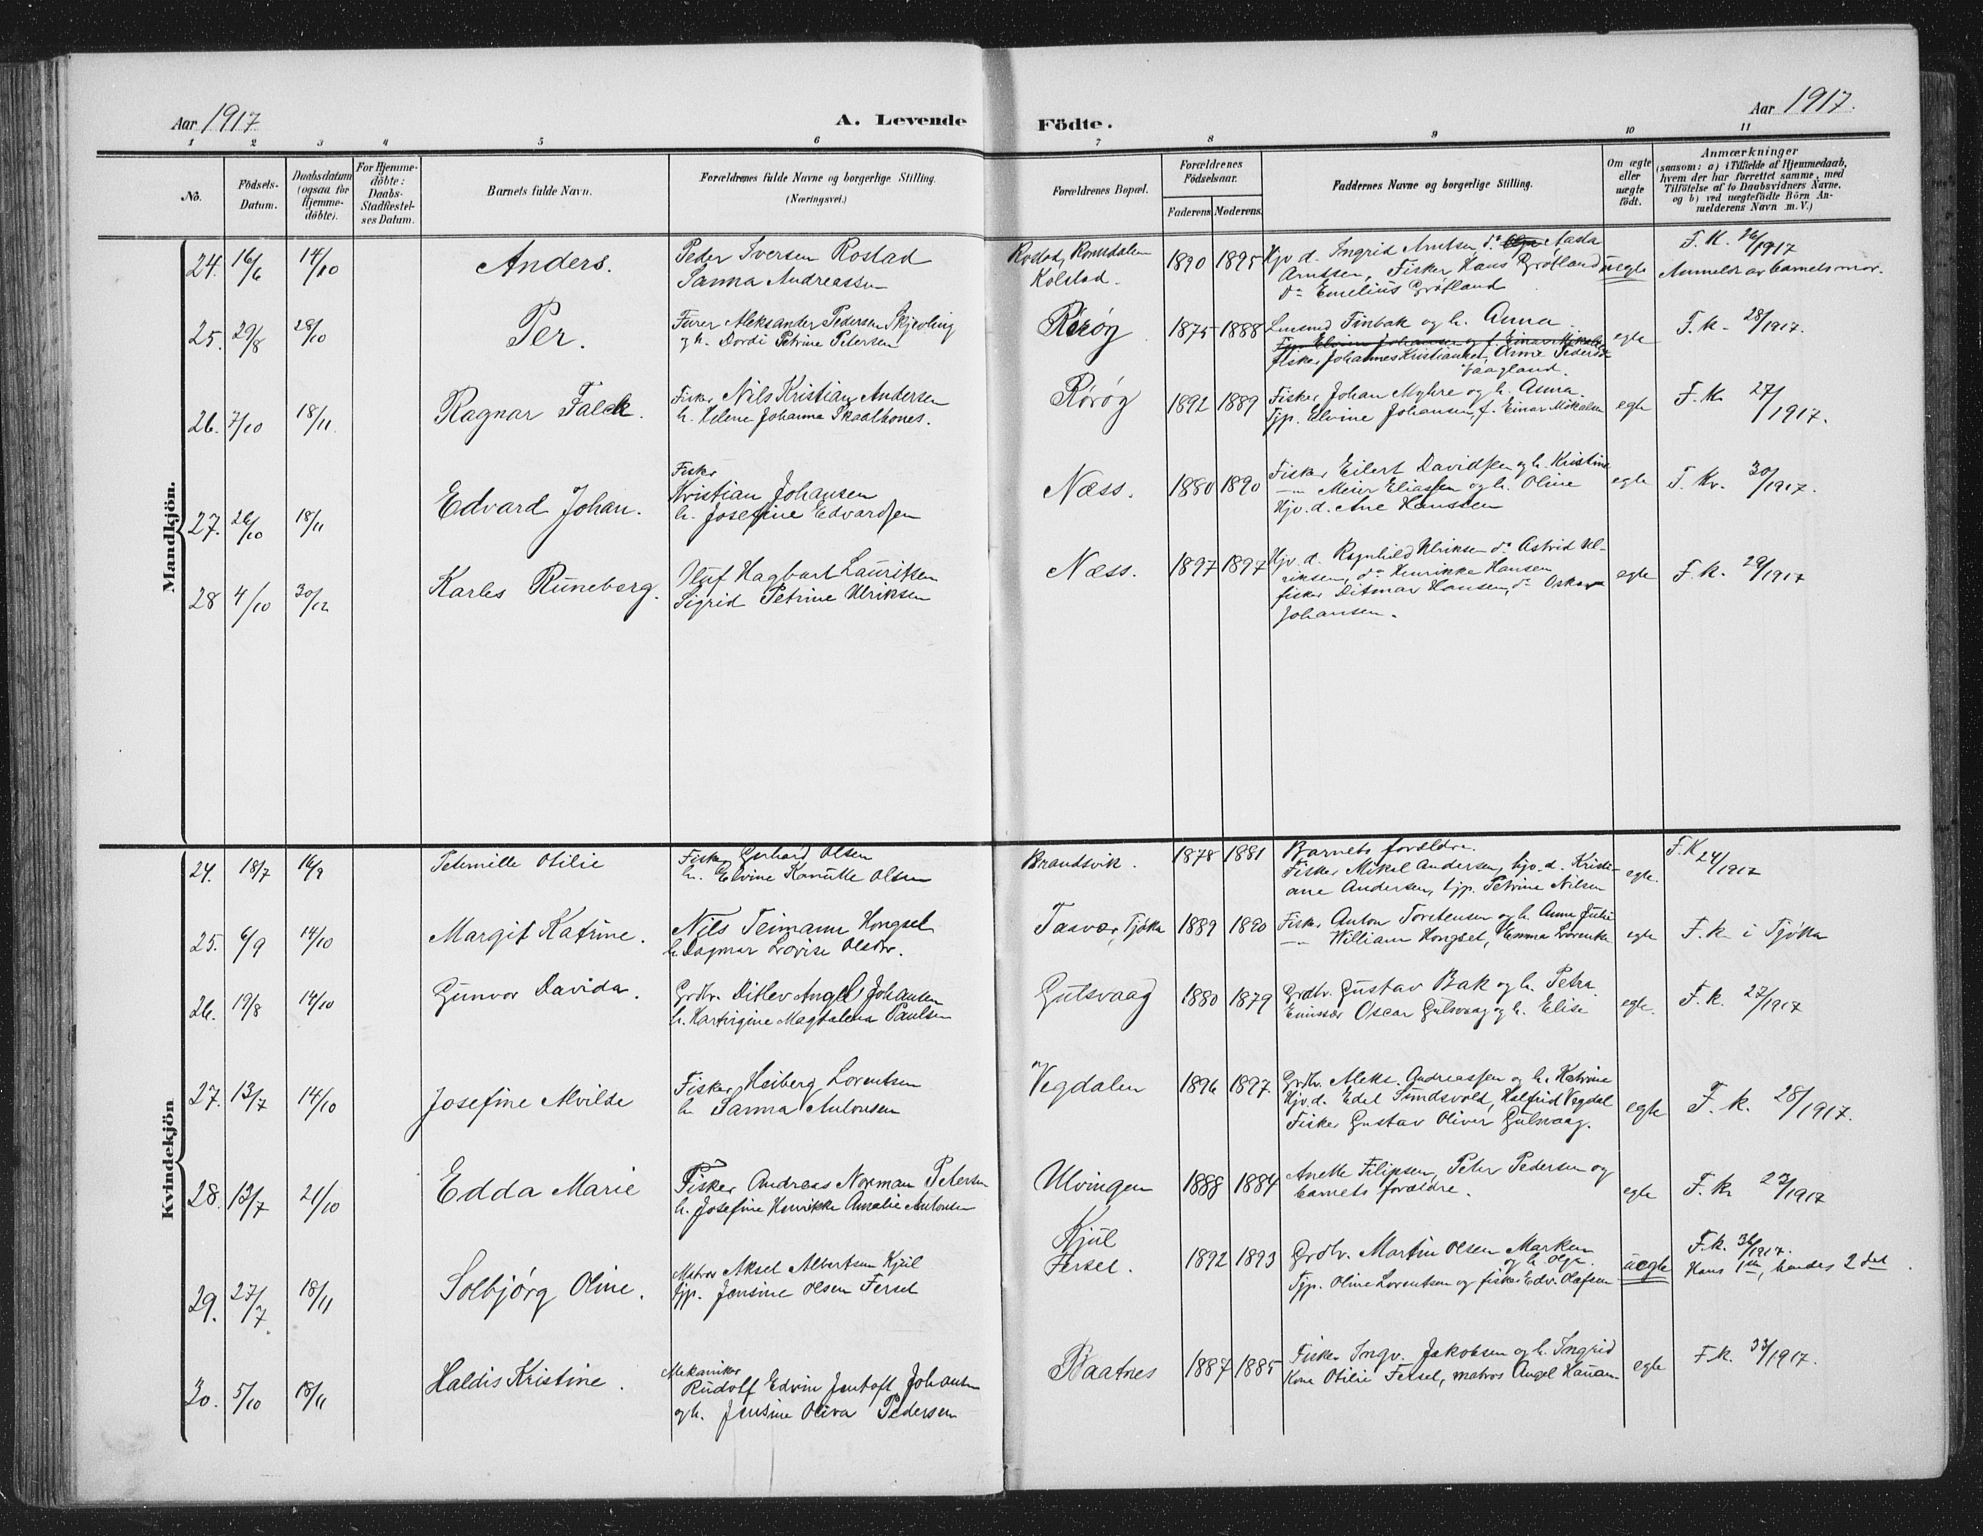 Aar 1917
A. Levende Födte.
Aar 1917.
1 2 3 4 5 6 7 8 9 10 11
No.
Födsels-Datum.
Daabsdatum (ogsaa for Hjemme-döbte).
For Hjemme-döbte: Daabs-Stadfæstel-ses Datum.
Barnets fulde Navn.
Forældrenes fulde Navne og borgerlige Stilling.
(Næringsvei.)
Forældrenes Bopæl.
Forældrenes Födselsaar.
Faderens Moderens
Faddernes Navne og borgerlige Stilling.
Om ægte eller uægte födt.
Anmærkninger
(saasom: a) i Tilfælde af Hjemmedaab, hvem der har forrettet samme, med Tilföielse af to Daabsvidners Navne, og b) ved uægtefödte Börn An-melderens Navn m. V.)
Mandkjön.
24. 16/6 14/10 Anders.
Peder Iversen Rostad
Sanna Andreassen
Rostad, Romsdalen
Kolstad.
1890 1895
Hjv. d. Ingrid Arntsen, do Aasta
Arntsen, Fisker Hans Grøtland
do Emelius Grøtland
uegte
F. K. 26/1917
Anmeldt av barnets mor.
25. 29/8 28/10 Per.
Furer Aleksander Pedersen Skjevling
og h. Dordi Petrine Petersen
Rørøy
1875 1888
Finbak og h. Anna
Fisker Johannes Kristiansen, Anna Pedersen
Vaagland.
egte
F. k. 28/1917.
26. 7/10 18/11 Ragnar Falck.
Fisker Nils Kristian Andersen
h. Helene Johanna Skaalbones.
Rørøy
1892 1889
Fisker Johan Myhre og h. Anna.
Tjp. Elvine Johansen, f. Einar Mikalsen
egte
F. K. 27/1917.
27. 26/10 18/11 Edvard Johan.
Fisker
Kristian Johansen
h. Josefine Edvardsen
Næss.
1880 1890
Fisker Eilert Davidsen og h. Kristine
—"— Meier Eliassen og h. Oline
Hjv. d. Ane Hanssen
egte
F. Kr. 30/1917.
28 4/10 30/12 Karles Runeberg.
Oluf Hagbart Lauritsen
Sigrid Petrine Ulriksen
Næss.
1897 1897
Hjv. d. Ragnhild Ulriksen do Astrid Ul-
riksen, do Henrikke Hansen
fisker Ditmar Hansen, do Oskar
Johansen.
egte
F. k. 29/1917
Kvindekjön
24. 18/7 16/9 Petrnille Otilie
Fisker Gerhard Olsen
h. Elvine Kanutte Olsen
Brandsvik.
1878 1881
Barnets forældre.
Fisker Mikal Andersen, hjv. d. Kristi-
ane Andersen, tjp. Petrine Nilsen
egte.
F. K 24/1917
25. 6/9 14/10 Margit Katrine.
Nils Teimann Hongset
h. Dagmar Lovise Olsdtr.
Tasvær, Tjøtta
1889 1890
Fisk. Anton Torstensen og h. Anna Julie
—"— William Hongset, Emma Lorentse
egte
F. k. i Tjøtta
26. 19/8 14/10 Gunvor Davida.
Grdbr. Ditlev Angel Johansen
h. Hartvigine Magdalena Paulsen
Gulsvaag
1880 1879
Grdbr. Gustav Bak og h. Petra
Emissær Oscar Gulsvaag og h. Elise
egte.
F. k. 27/1917
27. 13/7 14/10 Josefine Alvilde
Fisker Heiberg Lorentsen
h. Sanna Antonsen
Vegdalen
1896 1897.
Grdbr. Aleks. Andreassen og h. Katrine
Hjv. d. Edel Sundsvold, Halfrid Vegdal
Fisker Gustav Oliver Gulsvaag.
egte
F. k. 28/1917.
28. 13/7 21/10 Edda Marie
Fisker Andreas Norman Petersen
h. Josefine Henrikke Amalie Antonsen
Ulvingen
1888 1884
Anette Filipsen, Peter Pedersen og
barnets forældre.
egte
F. k. 27/1917
29. 27/7. 18/11 Solbjørg Oline.
Matros Aksel Albertsen Kjul
tjp. Jensine Olsen Forsel
Kjul
Forsel.
1892 1893
Grdbr. Martin Olsen Marken
og h. Olga.
Tjp. Oline Lorentsen og fisker Edv. Olafsen
uegte
F. k. 36/1917.
Hans 1ste, hendes 2det.
30. 5/10 18/11 Haldis Kristine.
Mekaniker
Rudolf Edvin Jentoft Johansen
og h. Jensine Oliva Pedersen
Baatnes
1887 1885
Fisker Ingv. Jakobsen og h. Ingrid
Kone Otilie Forsel, matros Angel
egte
F. k. 33/1917.